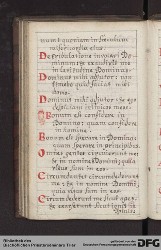 num: quoniam in seculum
misericordia eius.
De tribulatione inuocaui Do-
minum: et exaudiuit me
in latitudine Dominus.
Dominus mihi adiutor: non
timebo quid faciat mihi
homo.
Dominus mihi adiutor: et ego
despiciam inimicos meos.
Bonum est confidere in
Domino: quam confidere
in homine.
Bonum est sperare in Domino:
quam sperare in principibus.
Omnes gentes circuierunt me:
et in nomine Domini
quia ultus sum in eos.
Circumdantes circumdederunt
me: et in nomine Domini
quia ultus sum in eos.
Circumdederunt me sicut apes:
et exarserunt sicut ignis in
spinis
Bibliothek des
Bischöflichen Priesterseminars Trier